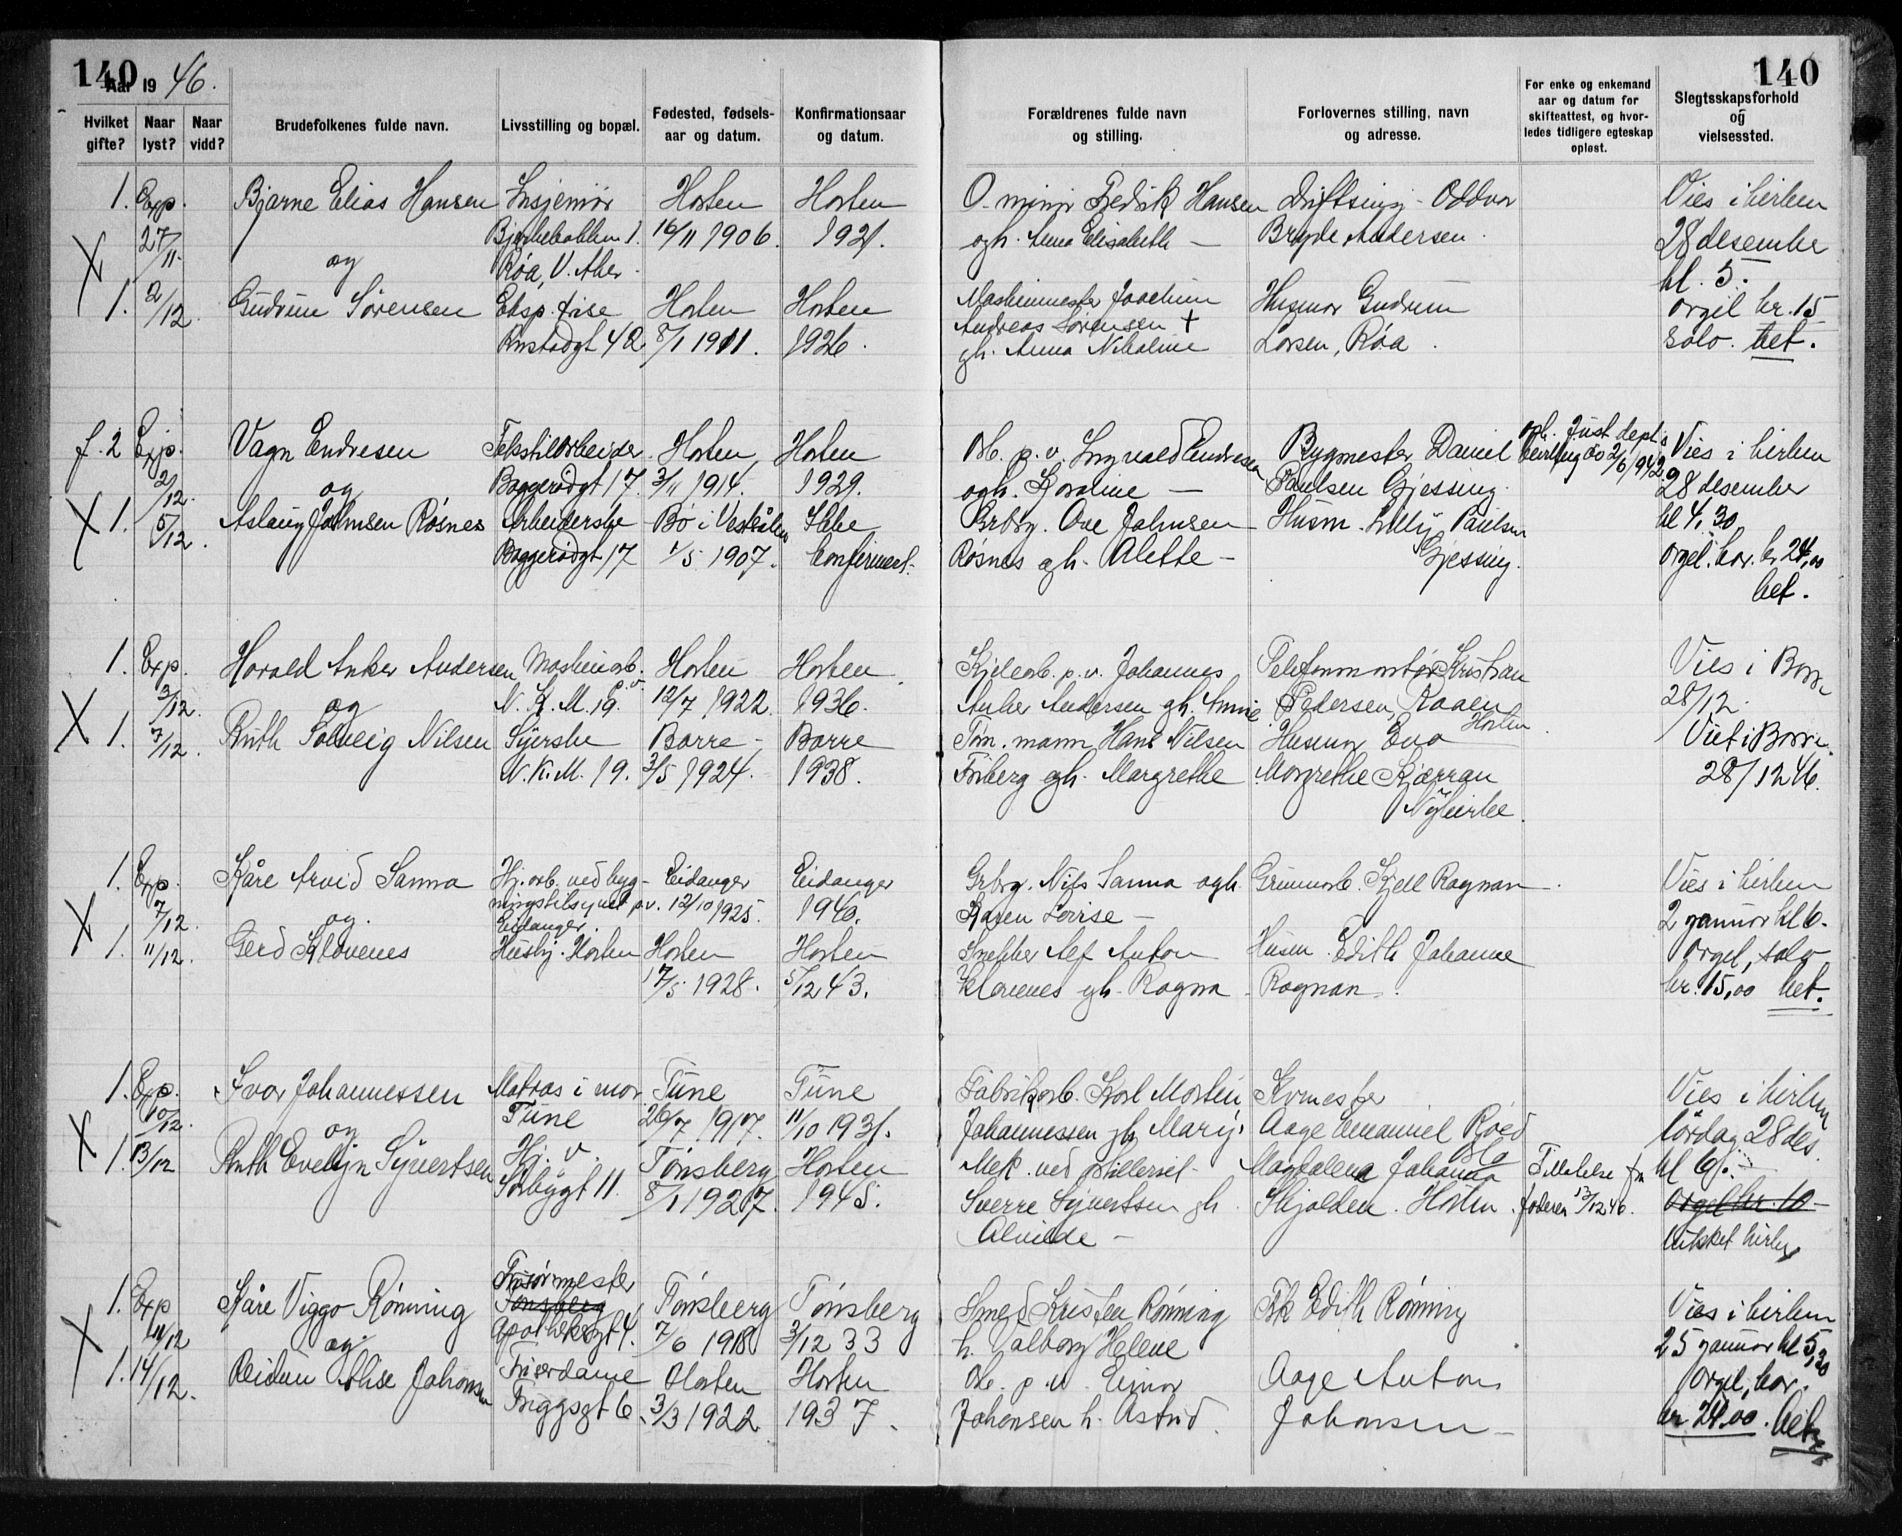 140
Aar 19 46.
140
Hvilket gifte?
Naar lyst?
Naar vidd?
Brudefolkenes fulde navn.
Livsstilling og bopæl.
Fødested, fødsels-
aar og datum.
Konfirmationsaar
og datum.
Forældrenes fulde navn
og stilling.
Forlovernes stilling, navn
og adresse.
For enke og enkemand
aar og datum for
skifteattest, og hvor-
ledes tidligere egteskap
opløst.
Slegtsskapsforhold
og
vielsessted.
1. Exp. Bjarne Elias Hansen Horten Horten O. minør Fredrik Hansen Driftsing. Oddvar Vies i kirken
27/11 16/11 1906. 1921. ogh. Anna Elisabeth — Bryde Andersen. 28 desember
X og Røa, V. Aker. kl. 5.
1. 2/12. Gudrun Sørensen Eksp. frise Horten Horten Maskinmester Joachim Husmor Gudrun orgel kr. 15
Andreas Sørensen +
8/1 1911. 1926. gh. Anna Nikoline Larsen, Røa. solo. bet.
f. 2 Exp. Vagn Endresen Tekstilarbeider Horten Horten Arb. p. v. Ingvald Endresen Bygmester Daniel Vies i kirken
2/12. og Baggerødgt 17. 3/11 1914. 1929. ogh. — Paulsen Gjessing. 28 desember
X 1. 5/12. Aslaug Johnsen Røsnes Arbeiderske Bø i Vesterålen Ikke Grbrg. Ove Johnsen Husm. Lilly Paulsen kl 4,30
Baggerødgt 17 1/5 1907. konfirmert. Røsnes gh. Alette — Gjessing. orgel. kor. kr 24,00
bet.
1. Exp. Harald Anker Andersen Maskinarb. p.v. Horten Horten Kjelearb. p. v. Johannes Telefonmontør Kristian Vies i Borre
3/12. og N. K. M. 19. 12/7 1922. 1936. Anker Andersen gh. Pedersen, Raaen 28/12.
Horten.
X 1. 7/12. Ruth Solveig Nilsen Syerske Borre — Borre Tøm. mann Hans Nilsen Husmor Eva Viet i Borre.
N. K. M. 19. 3/5 1924. 1938. gh. Margrethe Margrethe 28/12 46.
Nykirke.
1. Exp. Kåre Arvid Sanna Hj. arb. ved byg- Eidanger Eidanger Grbrg. Nils Sanna ogh. Kjell Ragnan. Vies i kirken
7/12. og. ningstilsynet p.v. 12/10 1925. 1940. Karen Lovise — 2 januar kl 6.
Eidanger.
X 1. 11/12. Gerd Klovenes Husbj. Horten Horten Horten Snekker Alf Anton Husm. Edith Johanne orgel, solo
17/5 1928. 5/12 43. Klovenes gh. Ragna Ragnan. kr. 15,00 bet.
1. Exp. Ivar Johannessen Matros i mar. Tune Tune Fabrikarb. Karl Martin Vies i kirken
10/12. og Tune 26/7 1917. 11/10 1931. Johannessen gh. Mary. Aage Emanuel Røed lørdag 28 des.
X 1. 13/12 Ruth Evelyn Syvertsen Hj. v. Tønsberg Horten Mek. ved Magdalena Johanna Tillatelse fra kl 6.
11. 8/1 1927. 1945. Sverre Syvertsen gh. Skjolden. Horten. faderen 13/12 46. Orgel kr. 10
Alvilde — kirke
1. Exp Kåre Viggo Rønning Frisørmester Tønsberg Tønsberg Smed Kristen Rønning Frk Edith Rønning Vies i kirken
Tønsberg
11/12 og Apotekergt 4. 7/6 1918 3/12 33 h. Valborg Helene 25 januar kl 5,30
X 1. 14/12. Reidun Alise Johansen Frisørdame Horten Horten Arb. p. v. Einar Aage Anton orgel, kor.
Friggsgt 6. 3/3 1922 1937. Johansen h. Astrid. Johansen — kr 24,00. bet.